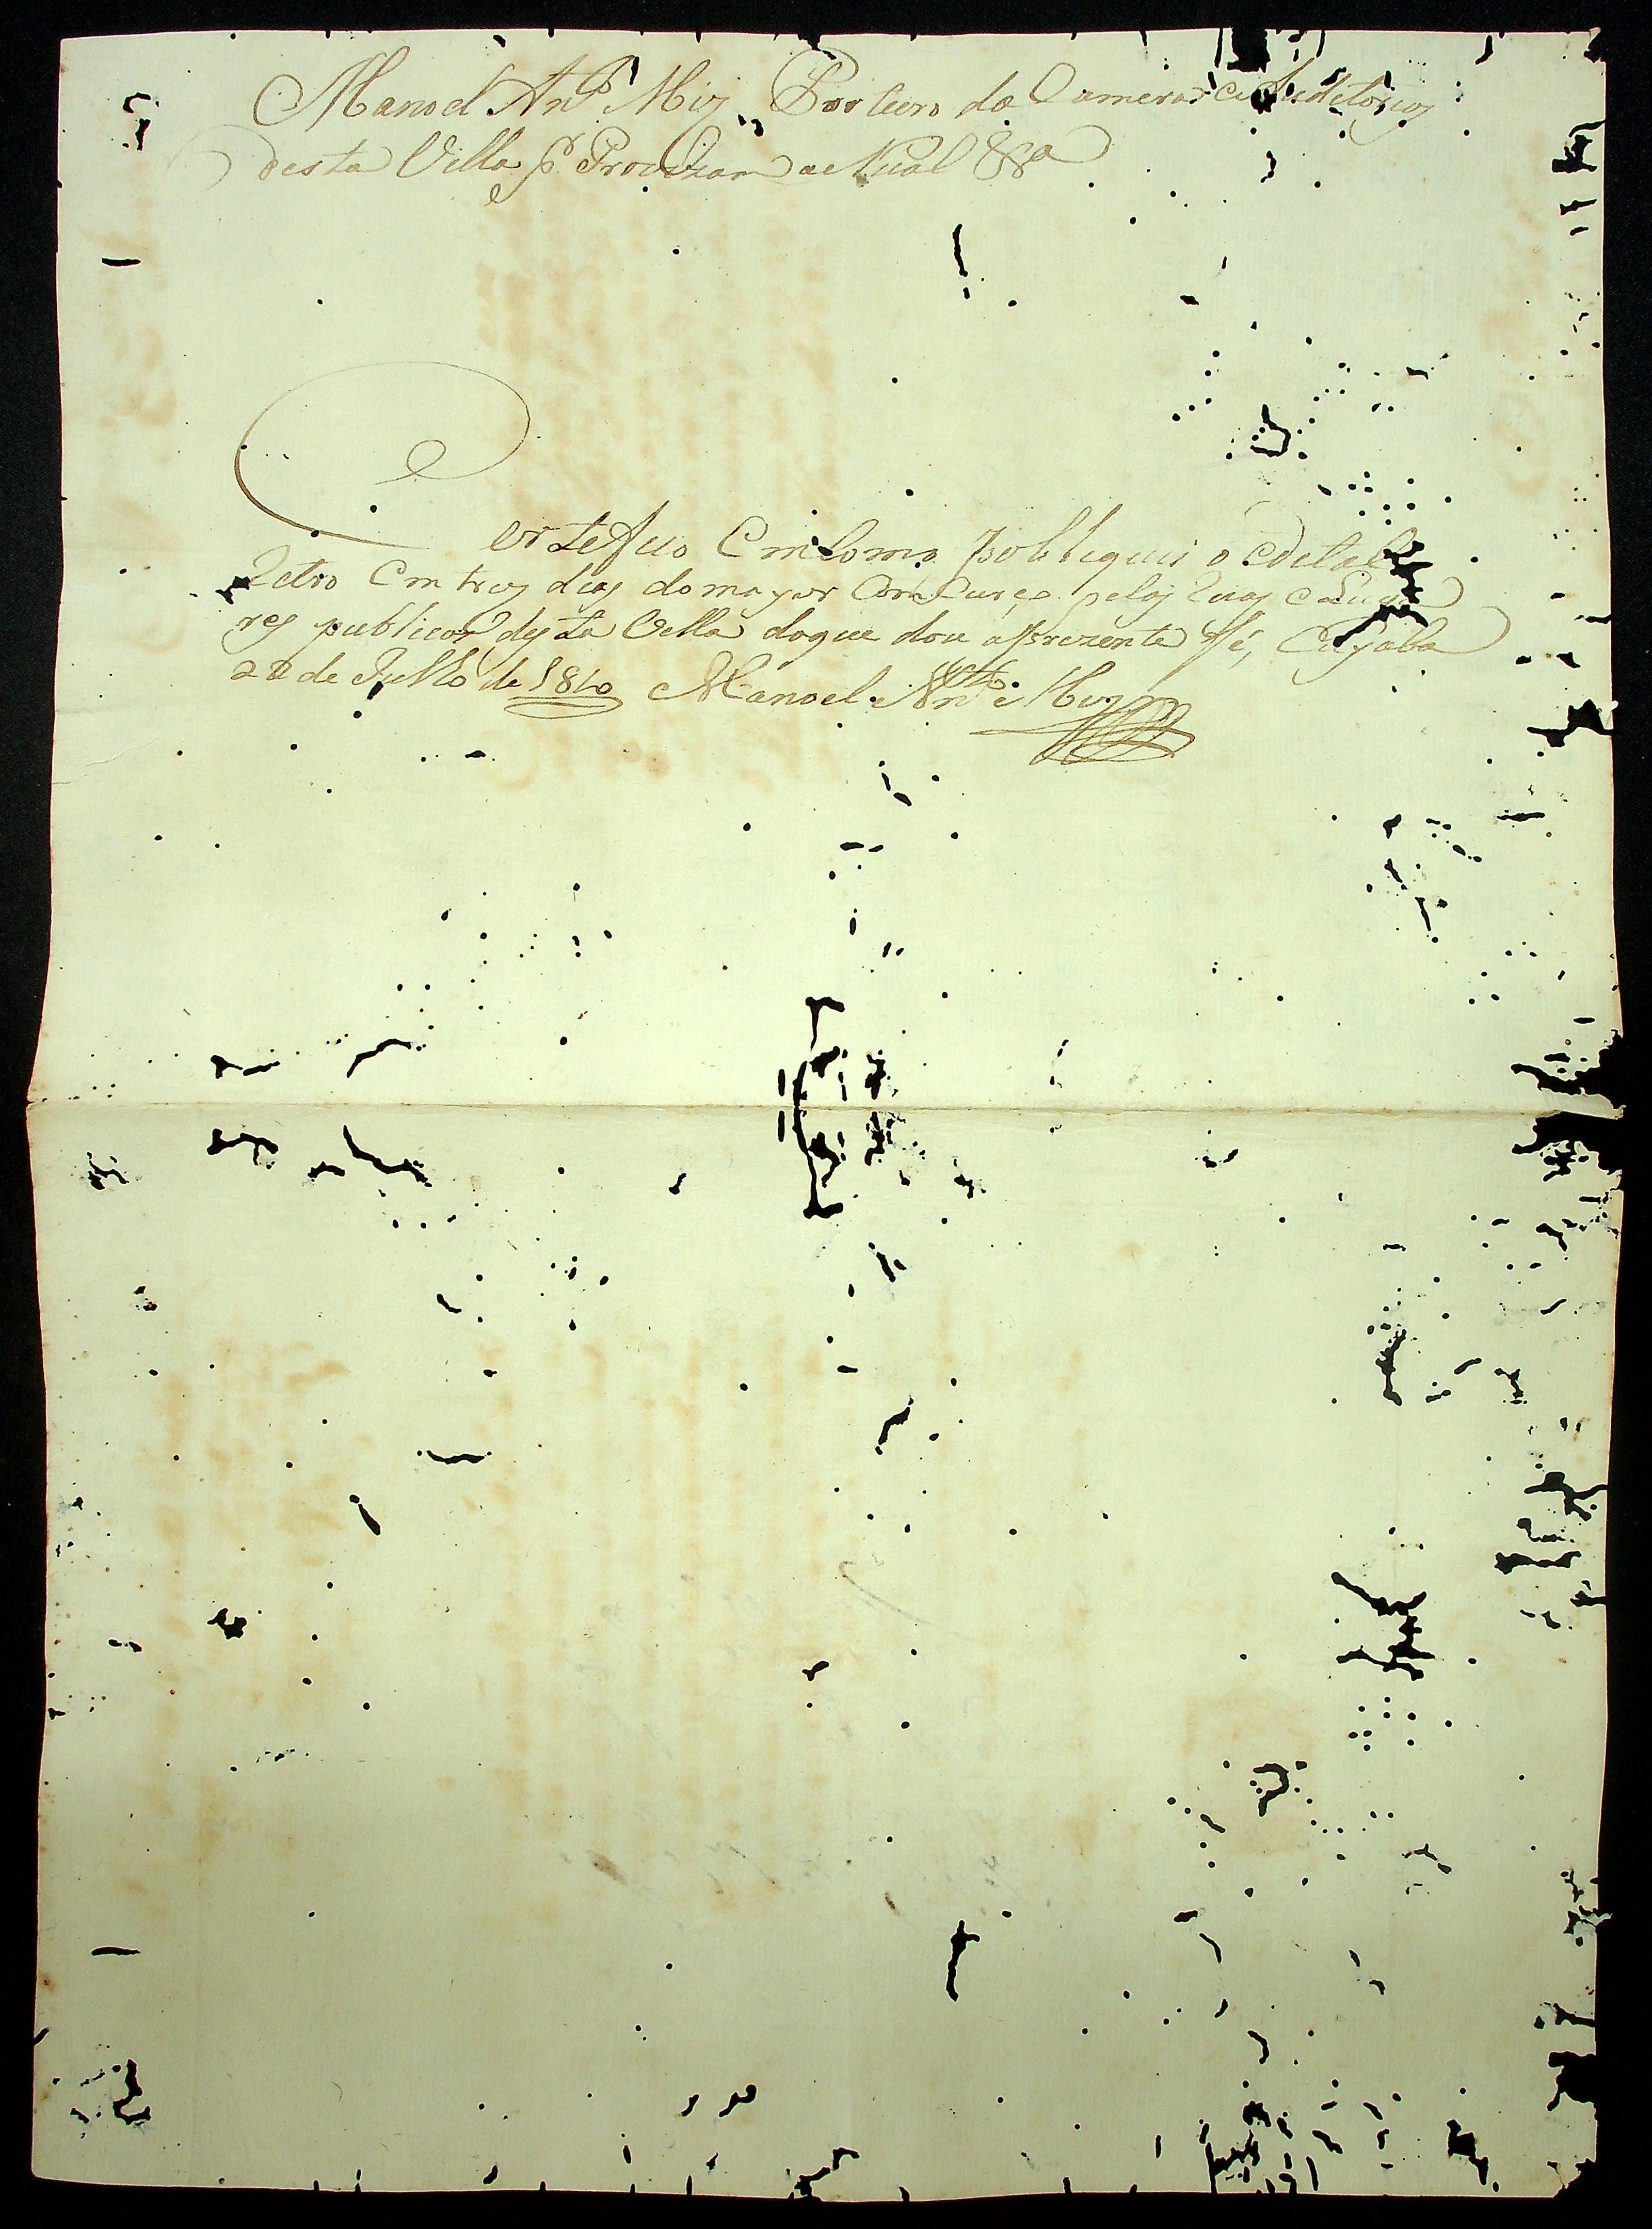 Manoel Ant.º Miz Porteiro da Camera e Auditorios
desta Villa p.r Provizam anNual &ª
Certefico Em Como Publiquei o edital
Retro Em tres dias do mayor ConCurço pelas Ruas e Luga
res publicos desta Villa doque dou aprezente fé, Cuyaba
22 de Julho de 1810 Manoel Antº Miz